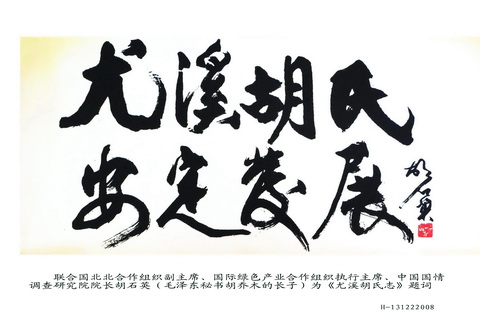 尤溪胡氏
安定发展
胡石英
联合国北北合作组织副主席、国际绿色产业合作组织执行主席、中国国情
调查研究院院长胡石英（毛泽东秘书胡乔木的长子）为《尤溪胡氏志》题词
H-131222008